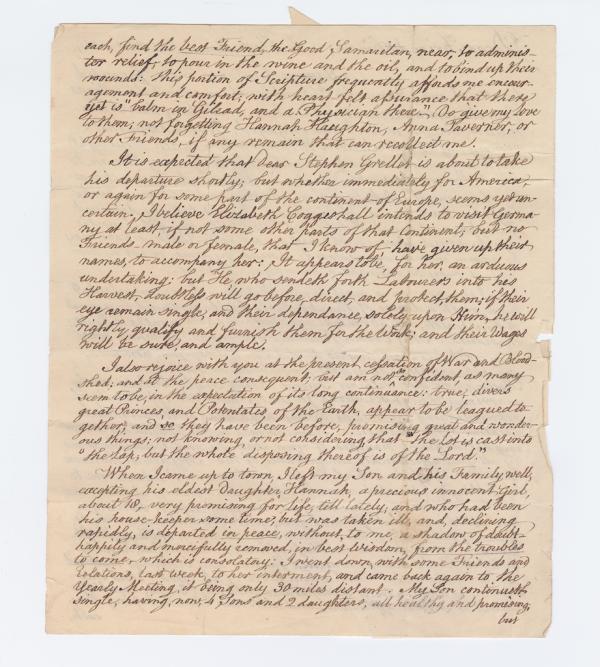 each, find the best Friend, the Good Samaritan, near, to adminis-
ter relief, to pour in the wine and the oil, and to bind up their
wounds: this portion of Scripture frequently affords me encour-
agement and comfort; with heart felt assurance that there
yet is "balm in Gilead, and a Physician there". Do give my Love
to them; not forgetting Hannah Haughton, Anna Taverner, or
other Friends, if any remain that can recollect me.
It is expected that dear Stephen Grellet is about to take
his departure shortly; but whether immediately for America,
or again for some part of the continent of Europe, seems yet un-
certain. I believe Elizabeth Coggeshall intends to visit Germa-
ny at least, if not some other parts of that Continent; but no
Friends male or female, that I know of, have given up their
names, to accompany her: It appears to be, for her, an arduous
undertaking: but He, who sendeth forth Labourers into his
Harvest, doubtless will go before, direct, and protect, them; if their
eye remain single, and their dependance, solely upon Him, he will
rightly qualify and furnish them for the Work; and their Wages
will be sure, and ample.
I also rejoice with you at the present cessation of War and Blood-
shed, and at the peace consequent; but am not so confident, as many
seem to be, in the expectation of its long continuance: true, divers
great Princes, and Potentates of the Earth, appear to be leagued to-
gether, and so they have been before, promising great and wonder-
ous things; not knowing, or not considering, that "the lot is cast into
"the Lap, but the whole disposing thereof is of the Lord."
When I came up to town, I left my Son and his Family well,
excepting his eldest Daughter, Hannah, a precious innocent girl,
about 18, very promising for life, till lately, and who had been
his house-keeper some time; but was taken ill, and, declining
rapidly, is departed in peace, without, to me, a shadow of doubt-
happily and mercifully removed, in best wisdom, from the troubles
to come, which is consolatory: I went down, with some Friends and
relations, last week, to her interment, and came back again to the
Yearly Meeting, it being only 30 miles distant. My Son continues
single, having, now, 4 Sons and 2 daughters, all healthy and promising;
but